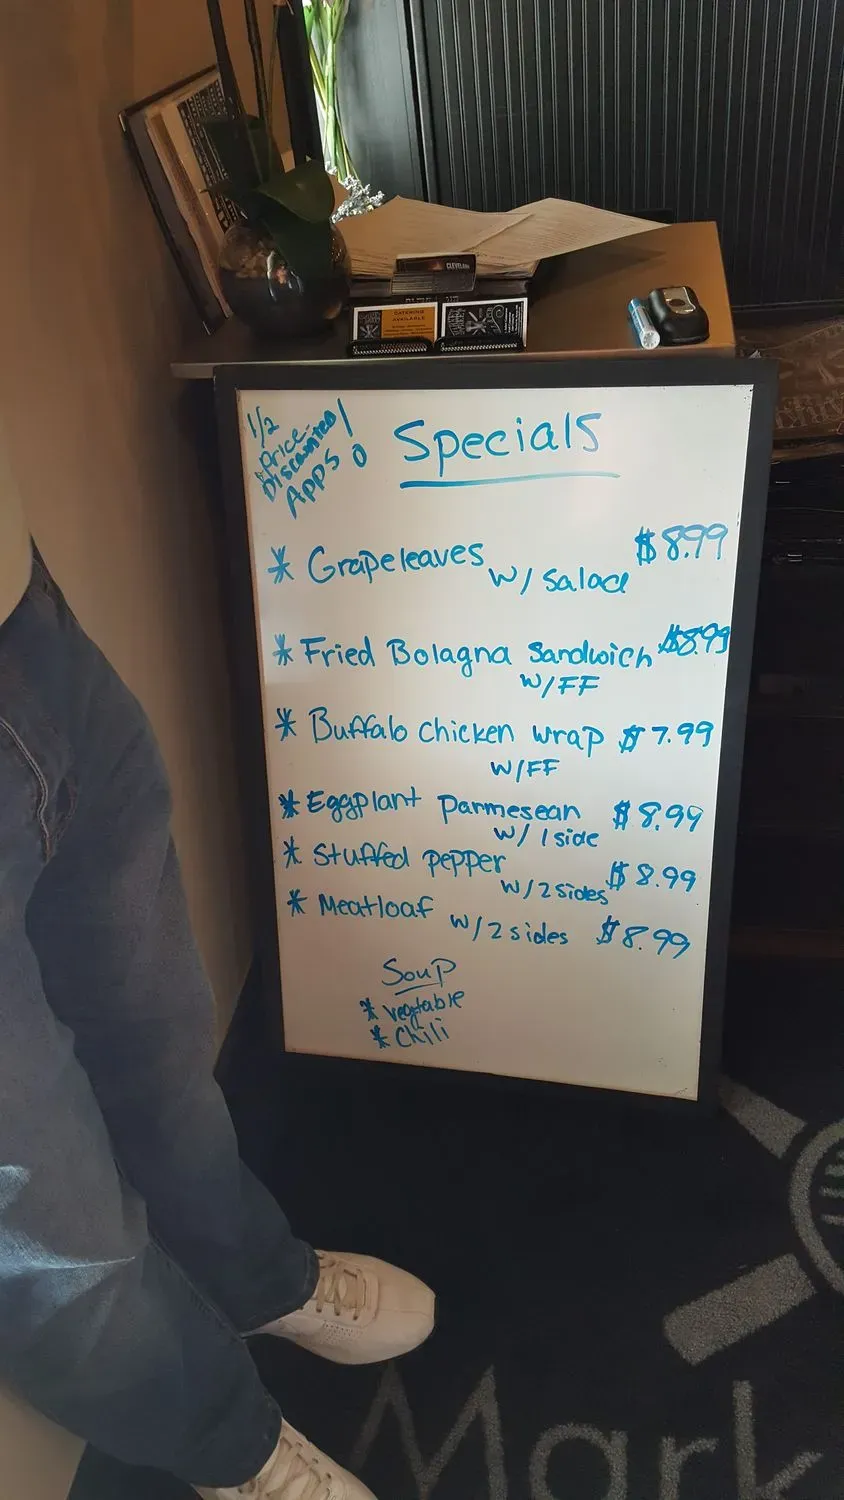 CLEVELAND
CATERING
AVAILABLE
1/2
Price
Discounted
Apps!
Specials
* Grapeleaves $8.99
w/ Salad
* Fried Bolagna Sandwich $8.99
w/FF
* Buffalo chicken wrap $7.99
w/FF
* Eggplant parmesean $8.99
w/ 1 side
* Stuffed pepper $8.99
w/ 2 sides
* Meatloaf w/ 2 sides $8.99
Soup
* Vegtable
* Chili
Mark